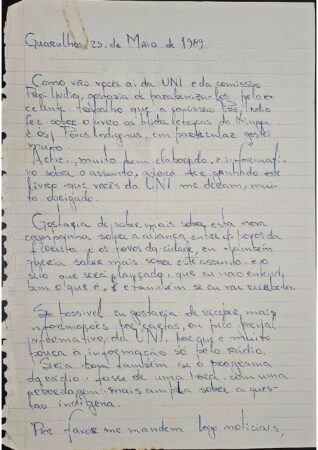 Guarulhos, 25, de Maio de 1989
Como vão vocês ai da UNI e da comissão
Pró-Índio, gostaria de parabenizar-les pelo ex
celente trabalho que a comissão Pró-Índio
fez sobre o livro as hidreletricas do Xingu
e os Povos Indigenas, em particular gostei
muito.
Achei, muito bem elaborado, e informati
vo sobre o assunto, adorei ter ganhado este
livro que vocês da UNI me deram, mui
to obrigado.
Gostaria de saber mais sobre esta nova
campanha sobre a aliança, entre os Povos da
Floresta e os povos da cidade, eu também
queria saber mais sobre este assunto, e o
selo que será lançado, que eu não entendi
bem o que é, e também se eu vou receber.
Se possivel eu gostaria de receber, mais
informações por cartas, ou pelo jornal
informativo da UNI, porque é muito
pouca a informação só pelo rádio.
Seria bom também se o programa
de rádio fosse de uma hora, com uma
abordagem mais ampla sobre a ques-
tão indigena.
Por favor me mandem logo noticias,